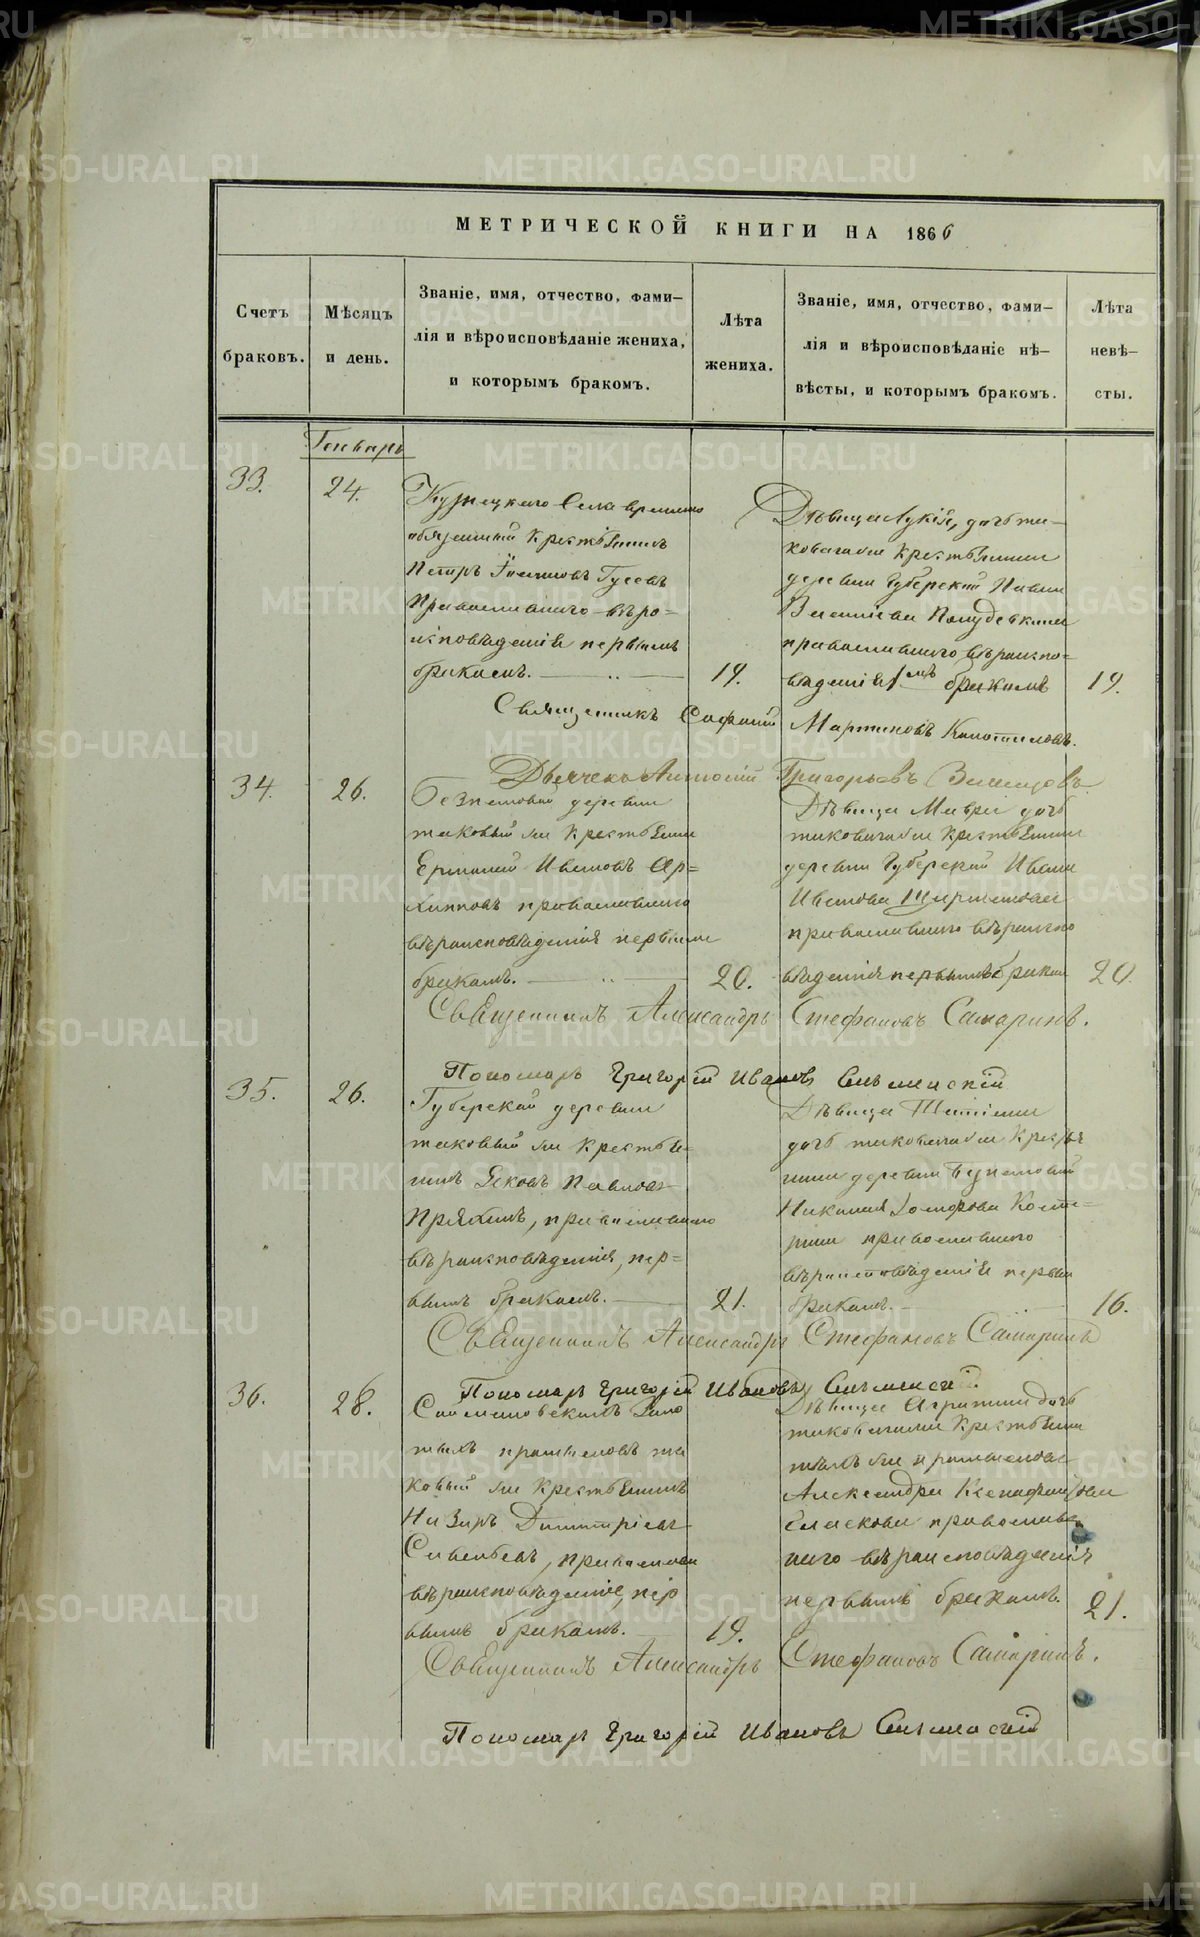 МЕТРИЧЕСКОЙ КНИГИ НА 1866
Счетъ
браковъ.
Мѣсяцъ
и день.
Званіе, имя, отчество, фами-
лія и вѣроисповѣданіе жениха,
и которымъ бракомъ.
Лѣта
жениха.
Званіе, имя, отчество, фами-
лія и вѣроисповѣданіе нѣ-
вѣсты, и которымъ бракомъ.
Лѣта
невѣ-
сты.
Генварь
33.
24.
Кузнецкаго Села временно
обязанный Крестьянинъ
Петръ Гусевъ
Православнаго вѣро-
исповѣданія первымъ
бракомъ.
19.
Дѣвица Лукія, дочь та-
коваго ли Крестьянина
деревни Губерской Павла
Полудевкина
православнаго вѣроиспо-
вѣданія 1мъ бракомъ
19.
Священникъ Мартиновъ
34.
26.
деревни
таковый ли Крестьянинъ
Ермолай Ивановъ Ар-
хиповъ православнаго
вѣроисповѣданія первымъ
бракомъ.
20.
Григорьевъ
Дѣвица Мавра дочь
таковаго ли Крестьянина
деревни Губерской Ивана
Иванова
православнаго вѣроиспо
вѣданія первымъ бракомъ
20.
Священникъ Александръ Стефановъ Самаринъ.
Пономарь Григорій Ивановъ
35.
26.
Губерской деревни
таковый ли Крестья-
нинъ Яковъ Павловъ
Пряхинъ, православнаго
вѣроисповѣданія, пер-
вымъ бракомъ.
21.
Дѣвица Татіана
дочь таковаго ли Крестья
нина деревни
Николая Кост-
рина православнаго
вѣроисповѣданія первымъ
бракомъ.
16.
Священникъ Александръ Стефановъ Самаринъ
Пономарь Григорій Ивановъ
36.
28.
Соймановскихъ Золо
тыхъ промысловъ та
ковый ли Крестьянинъ
Назаръ Димитріевъ
православнаго
вѣроисповѣданія, пер
вымъ бракомъ.
19.
Дѣвица Агрипина дочь
таковаго ли Крестьянина
тѣхъ ли промысловъ
Александра
православ
наго вѣроисповѣданія
первымъ бракомъ.
21.
Священникъ Александръ Стефановъ Самаринъ.
Пономарь Григорій Ивановъ
METRIKI.GASO-URAL.RU